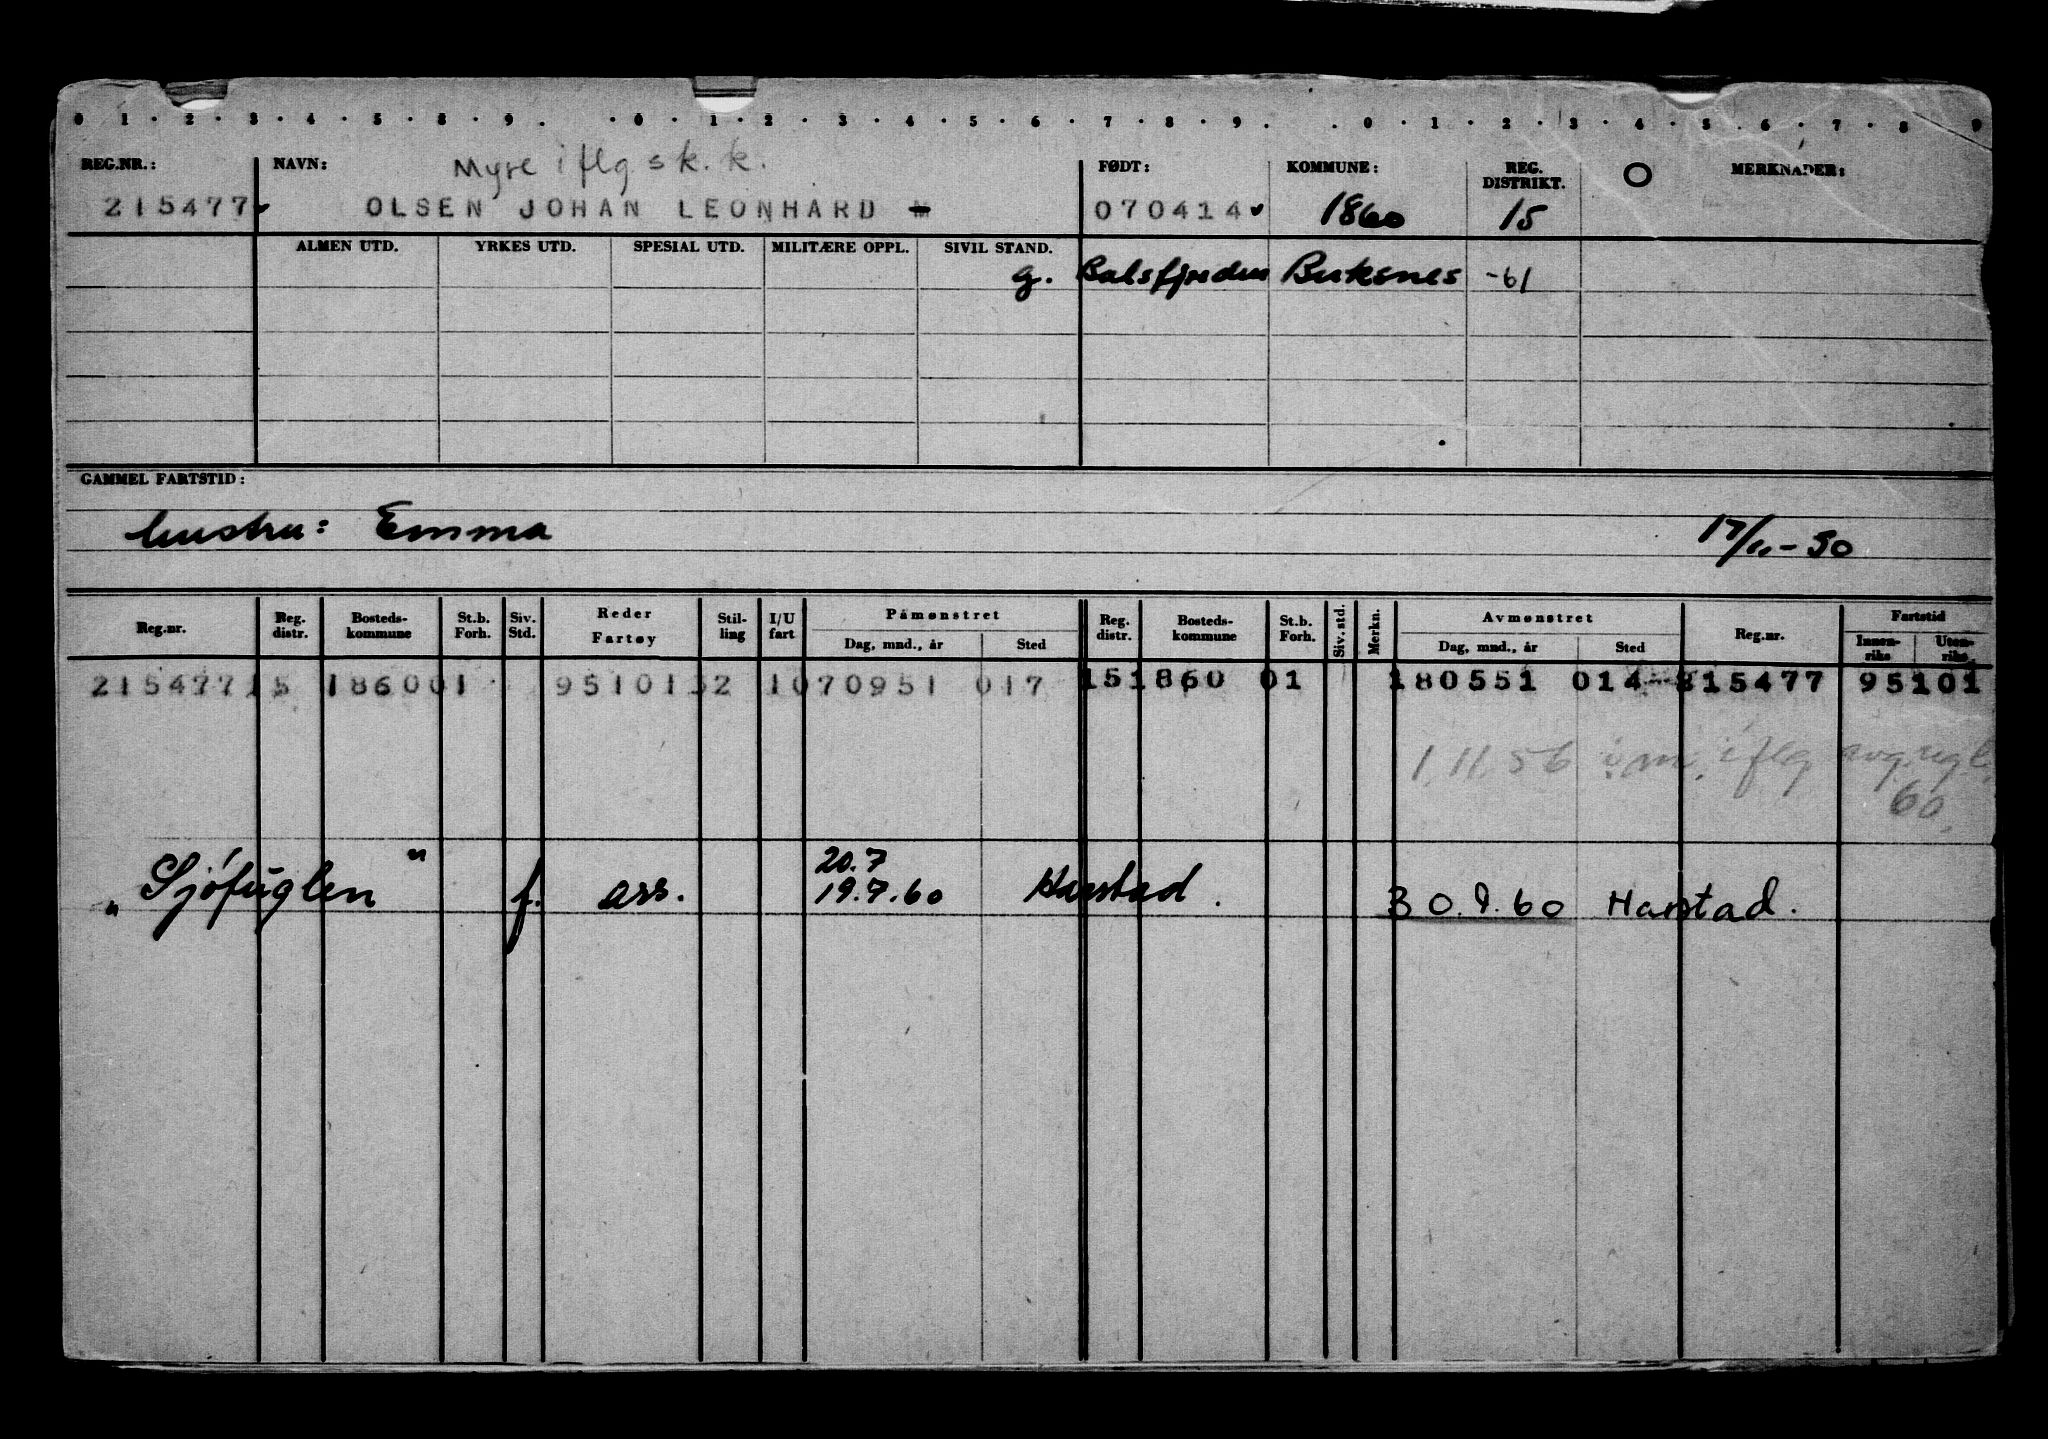 0 1 . 2 . 3 . 4 . 5 . 8 . 9 . . 0 . 1 . 2 . 3 . 4 . 5 . 6 . 7 . 8 . 9 . . 0 . 1 . 2 . 3 . 4 . 5 . 6 . 7 . 8 . 9
Myre iflg s k. k.
REG.NR.: NAVN: FØDT: KOMMUNE: REG. DISTRIKT. O MERKNADER:
215477 OLSEN JOHAN LEONHARD 070414 1860 15
ALMEN UTD. YRKES UTD. SPESIAL UTD. MILITÆRE OPPL. SIVIL STAND.
g. Balsfjorden Buksnes -61
GAMMEL FARTSTID:
hustru: Emma 17/11-50
Reg.nr. Reg. distr. Bosteds-kommune St.b. Forh. Siv. Std. Reder Fartøy Stil-ling I/U fart Påmønstret Dag, mnd., år Sted Reg. distr. Bosteds-kommune St.b. Forh. Siv. std. Merkn. Avmønstret Dag, mnd., år Sted Reg.nr. Fartstid Innen-riks Uten-riks
215477 15 1860 01 95101 52 1 070951 017 15 1860 01 180551 014 215477 95101
1.11.56 i.m. iflg avg.regl. 60.
"Sjøfuglen" f. ass. 20.7 19.7.60 Harstad. 30.9.60 Harstad.